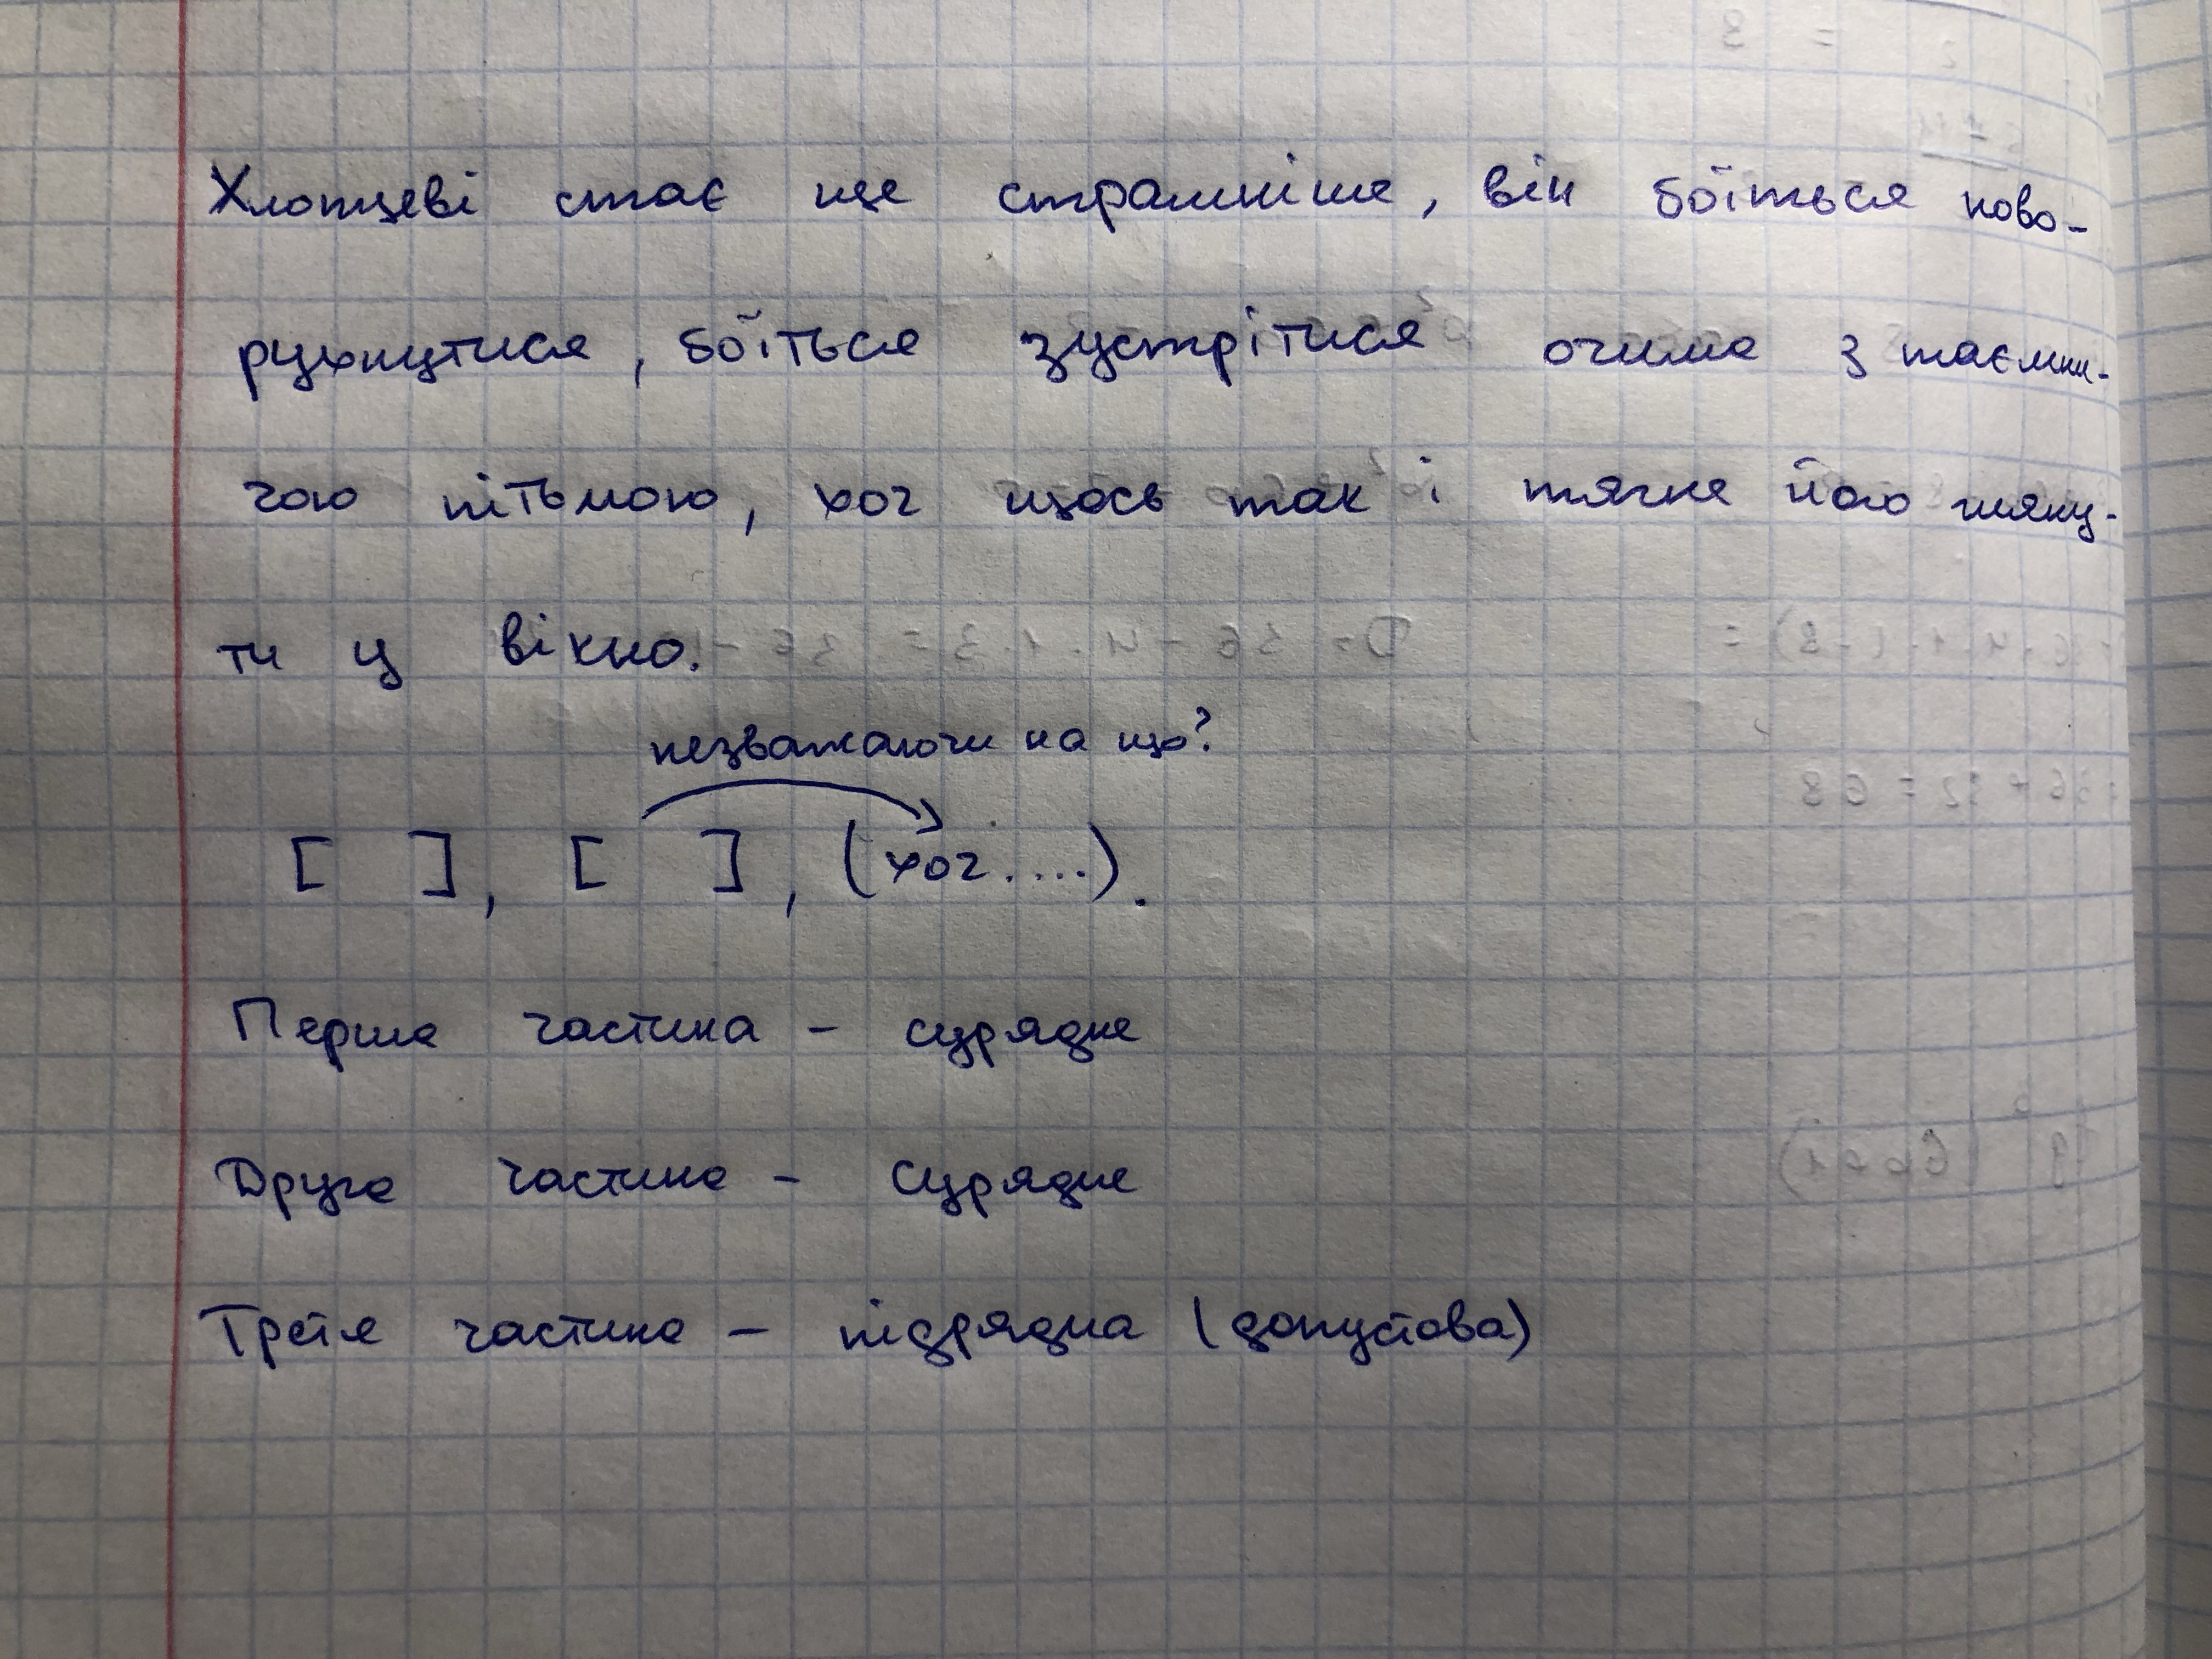 Хлопцеві стає ще страшніше, він боїться пово-
рухнутися, боїться зустрітися очима з таємни-
чою пітьмою, хоч щось так і тягне його гляну-
ти у вікно.
незважаючи на що?
[ ], [ ], (хоч....).
Перша частина - сурядне
Друга частина - Сурядне
Третя частина - підрядна (допустова)